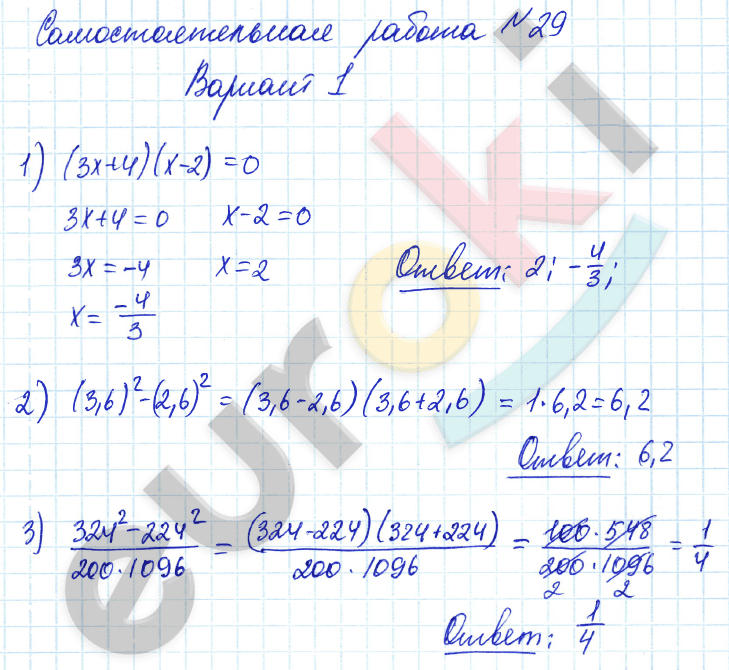 Самостоятельная работа №29
Вариант 1
1) (3x+4)(x-2)=0
3x+4=0 x-2=0
3x=-4 x=2 Ответ: 2; -4/3;
x= -4/3
2) (3,6)²-(2,6)² = (3,6-2,6)(3,6+2,6) = 1·6,2=6,2
Ответ: 6,2
3) (324²-224²)/(200·1096) = ((324-224)(324+224))/(200·1096) = (100·548)/(200·1096) = 1/4
2 2
Ответ: 1/4
euroki